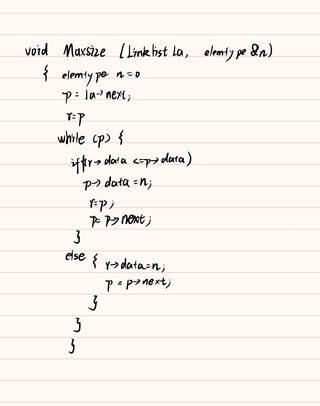 void Maxsize (Linklist la, elemtype &n)
{ elemtype n=0
p = la->next;
r=p
while (p) {
if(r->data <=p->data)
p->data =n;
r=p;
p= p->next;
}
else { r->data=n;
p = p->next;
}
}
}